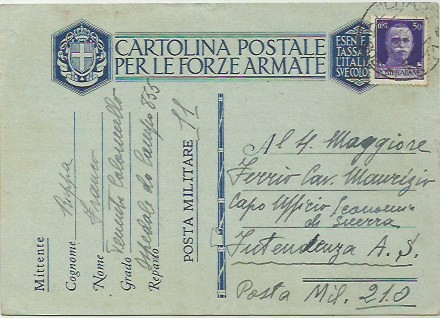 CARTOLINA POSTALE
PER LE FORZE ARMATE
ESEN E
TASSA P
L'ITALIA
SVE COLO
50
POSTE ITALIANE
Mittente
Cognome Pippa
Nome Franco
Grado Tenente Colonnello
Reparto Ospedale da Campo 835
POSTA MILITARE 11
Al Maggiore
Ferrio Cav. Maurizio
Capo Ufficio Economia
di Guerra
Intendenza A. S.
Posta Mil. 210